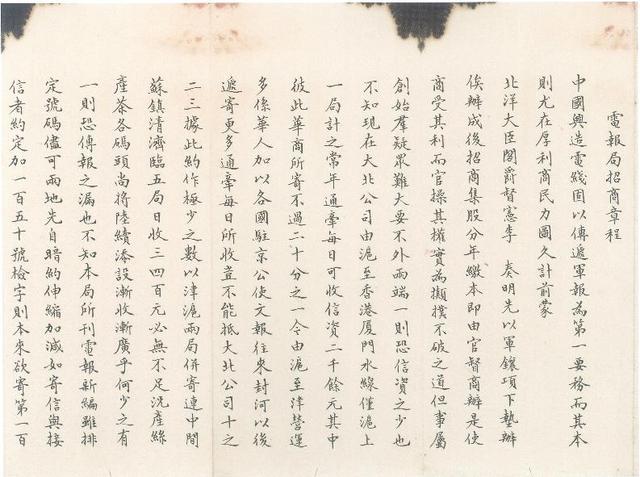 電報局招商章程
中國興造電綫固以傳遞軍報為第一要務而其本
則尤在厚利商民力圖久計前蒙
北洋大臣閣爵督憲李 奏明先以軍饟項下墊辦
俟辦成後招商集股分年繳本即由官督商辦是使
商受其利而官操其權實為顛撲不破之道但事屬
創始羣疑眾難大要不外兩端一則恐信資之少也
不知現在大北公司由滬至香港厦門水線僅滬上
一局計之常年通牽每日可收信資二千餘元其中
彼此華商所寄不過二十分之一今由滬至津營運
多係華人加以各國駐京公使文報往來封河以後
遞寄更多通牽每日所收豈不能抵大北公司十之
二三據此約作極少之數以津滬兩局併寄連中間
蘇鎮清濟臨五局日收三四百元必無不足況產絲
產茶各碼頭尚將陸續添設漸收漸廣乎何少之有
一則恐傳報之漏也不知本局所刊電報新編雖排
定號碼儘可兩地先自暗約伸縮加減如寄信與接
信者約定加一百五十號檢字則本來欲寄第一百